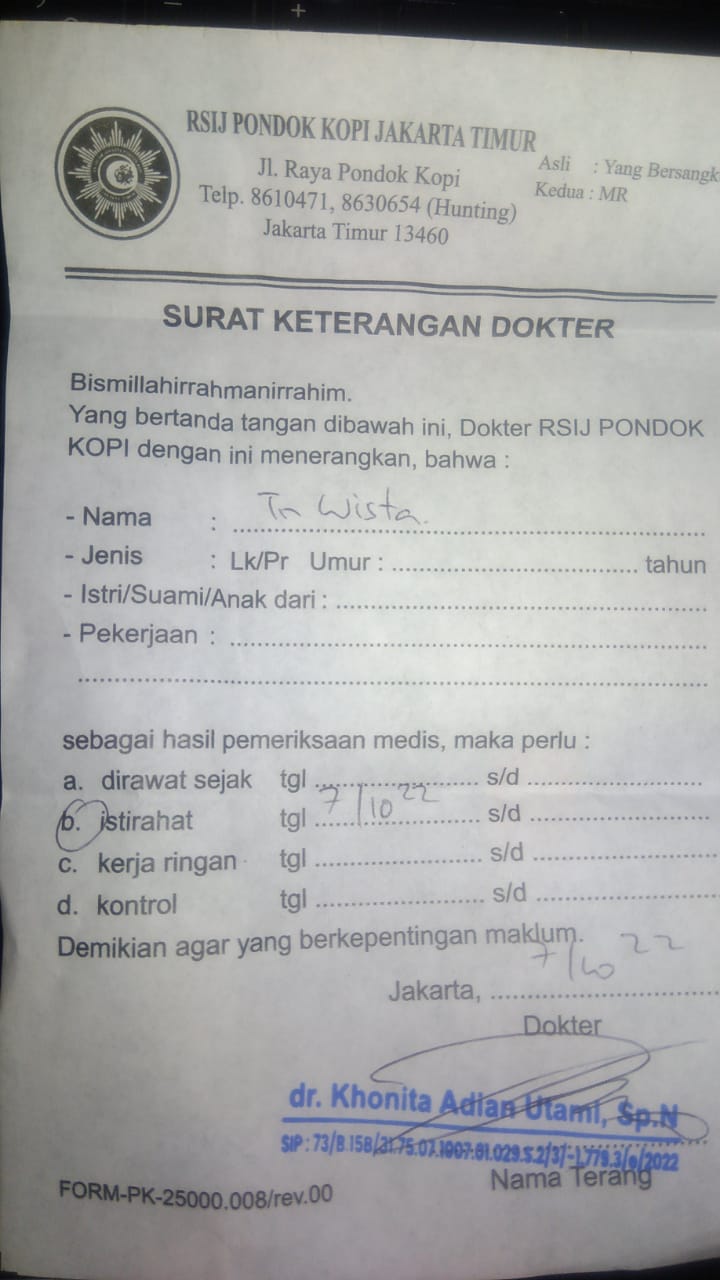 RSIJ PONDOK KOPI JAKARTA TIMUR
Jl. Raya Pondok Kopi
Telp. 8610471, 8630654 (Hunting)
Jakarta Timur 13460
Asli : Yang Bersangk
Kedua : MR
SURAT KETERANGAN DOKTER
Bismillahirrahmanirrahim.
Yang bertanda tangan dibawah ini, Dokter RSIJ PONDOK
KOPI dengan ini menerangkan, bahwa :
- Nama : Tn Wista.
- Jenis : Lk/Pr Umur : ........ tahun
- Istri/Suami/Anak dari : ........
- Pekerjaan : ........
sebagai hasil pemeriksaan medis, maka perlu :
a. dirawat sejak tgl ........ s/d ........
b. istirahat tgl 7/10 22 s/d ........
c. kerja ringan tgl ........ s/d ........
d. kontrol tgl ........ s/d ........
Demikian agar yang berkepentingan maklum.
Jakarta, 7/10 22
Dokter
dr. Khonita Adian Utami, Sp.N
SIP : 73/B.158/
Nama Terang
FORM-PK-25000.008/rev.00